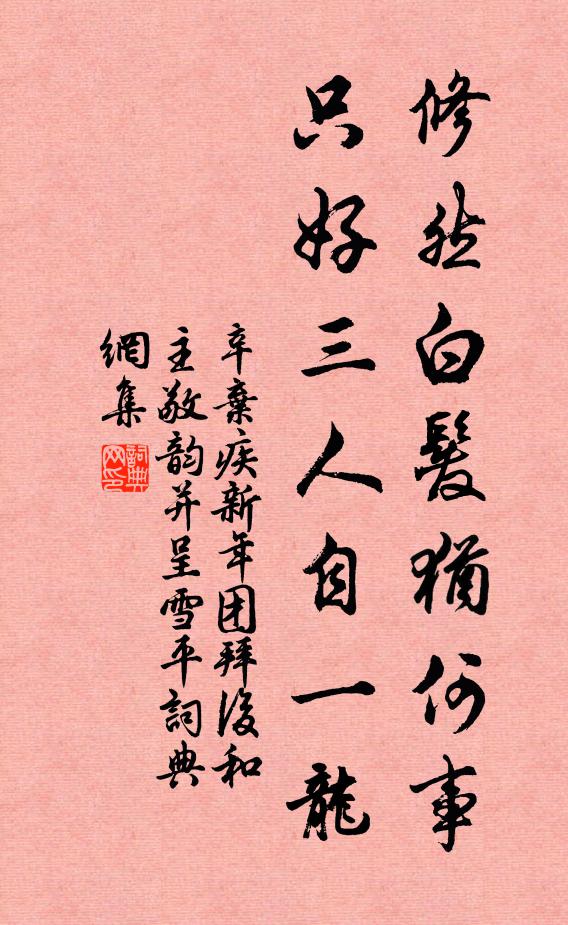 修然白髮犹何事
只好三人自一龍
辛棄疾新年团拜後和
主敬韵并呈雪平詞典
網集
詞典
网印